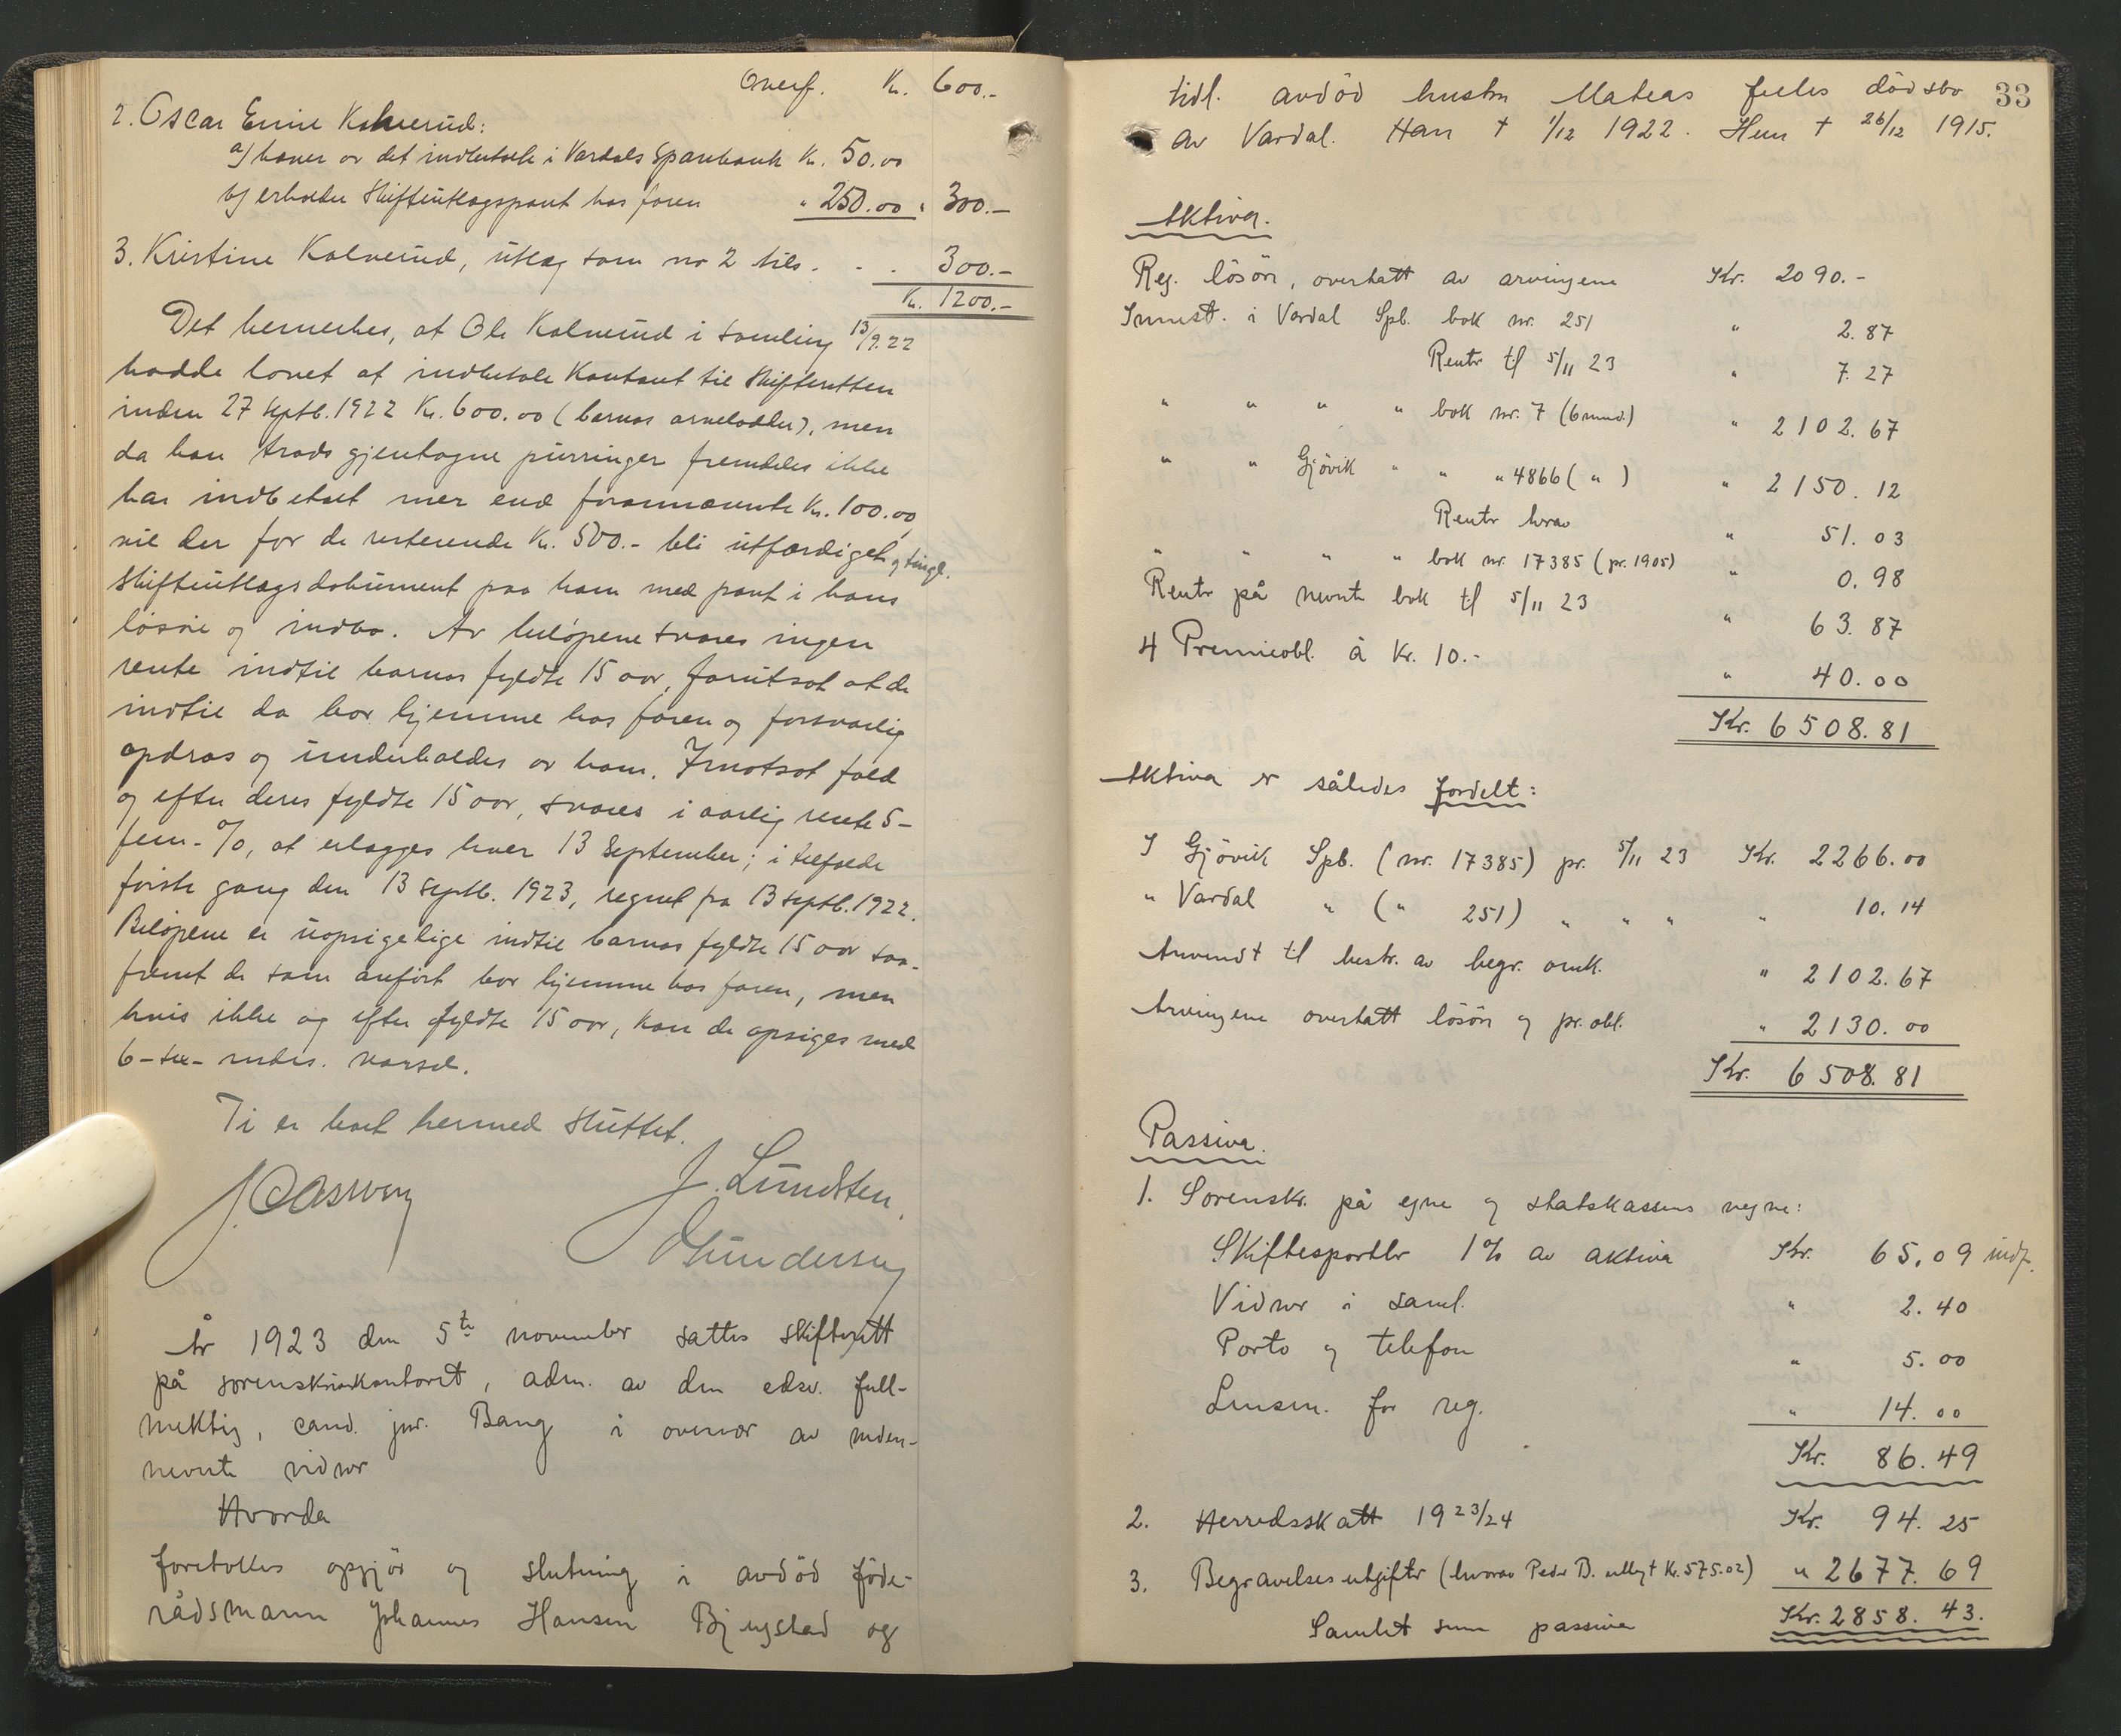 Overf. Kr. 600.-
2. Oscar Kolverud:
a) haves av det indbetalte i Vardals Sparebank Kr. 50.00
b) erholder Skifteutlægspant hos faren " 250.00 " 300.-
3. Kristine Kolverud, utlæg som nr 2 tils. . . 300.-
Kr. 1200.-
Det bemerkes, at Ole Kolverud i samling 13/9.22
hadde lovet at indbetale kontant til Skifteretten
inden 27 septb. 1922 Kr. 600.00 (barnas arvelodder), men
da han trods gjentagne purringer fremdeles ikke
har indbetalt mer end forannævnte Kr. 100.00,
vil der for de resterende Kr. 500.- bli utfærdiget og tingl.
Skifteutlægsdokument paa ham med pant i hans
løsøre og indbo. Av beløpene svares ingen
rente indtil barnas fyldte 15 aar, forutsat at de
indtil da bor hjemme hos faren og forsvarlig
opdras og underholdes av ham. I motsat fald
og efter deres fyldte 15 aar, svares i aarlig rente 5-
fem-%, at erlægges hver 13 september; i tilfælde
første gang den 13 septb. 1923, regnet fra 13 septb. 1922.
Beløpene er uopsigelige indtil barnas fyldte 15 aar saa-
fremt de som anført bor hjemme hos faren, men
hvis ikke og efter fyldte 15 aar, kan de opsiges med
6-sex- mdrs. varsel.
Ti er boet hermed sluttet.
J. Lundsten.
O Gundersen
År 1923 den 5te november sattes skifterett
på sorenskriverkontoret, adm. av den edsv. full-
mektig, cand. jur. Bang i overvær av neden-
nevnte vidner
Hvorda
foretokes opgjør og slutning i avdød føde-
rådsmann Johannes Hansen Bjugstad og
33
tidl. avdød hustru Mateas felles dødsbo
av Vardal. Han † 1/12 1922. Hun † 26/12 1915.
Aktiva.
Reg. løsøre, overtatt av arvingene Kr. 2090.-
Innest. i Vardal Spb. bok nr. 251 " 2.87
Renter til 5/11 23 " 7.27
" " " " bok nr. 7 (6 mnd.) " 2102.67
" " Gjøvik " " " 4866 ( " ) " 2150.12
Renter herav " 51.03
" " " " bok nr. 17385 (pr. 1905) " 0.98
Renter på nevnte bok til 5/11 23 " 63.87
4 Premieobl. à Kr. 10.- " 40.00
Kr. 6508.81
Aktiva er således fordelt:
I Gjøvik Spb. (nr. 17385) pr. 5/11 23 Kr. 2266.00
" Vardal " ( " 251) " " " " 10.14
Anvendt til bestr. av begr. omk. " 2102.67
Arvingene overtatt løsøre og pr. obl. " 2130.00
Kr. 6508.81
Passiva.
1. Sorenskr. på egne og statskassens vegne:
Skiftesportler 1% av aktiva Kr. 65.09 indf.
Vidner i saml. " 2.40
Porto og telefon " 5.00
Lensm. for reg. " 14.00
Kr. 86.49
2. Herredsskatt 1923/24 Kr. 94.25
3. Begravelsesutgifter (hvorav Peder B. utlagt Kr. 575.02) " 2677.69
Samlet sum passiva Kr. 2858.43.